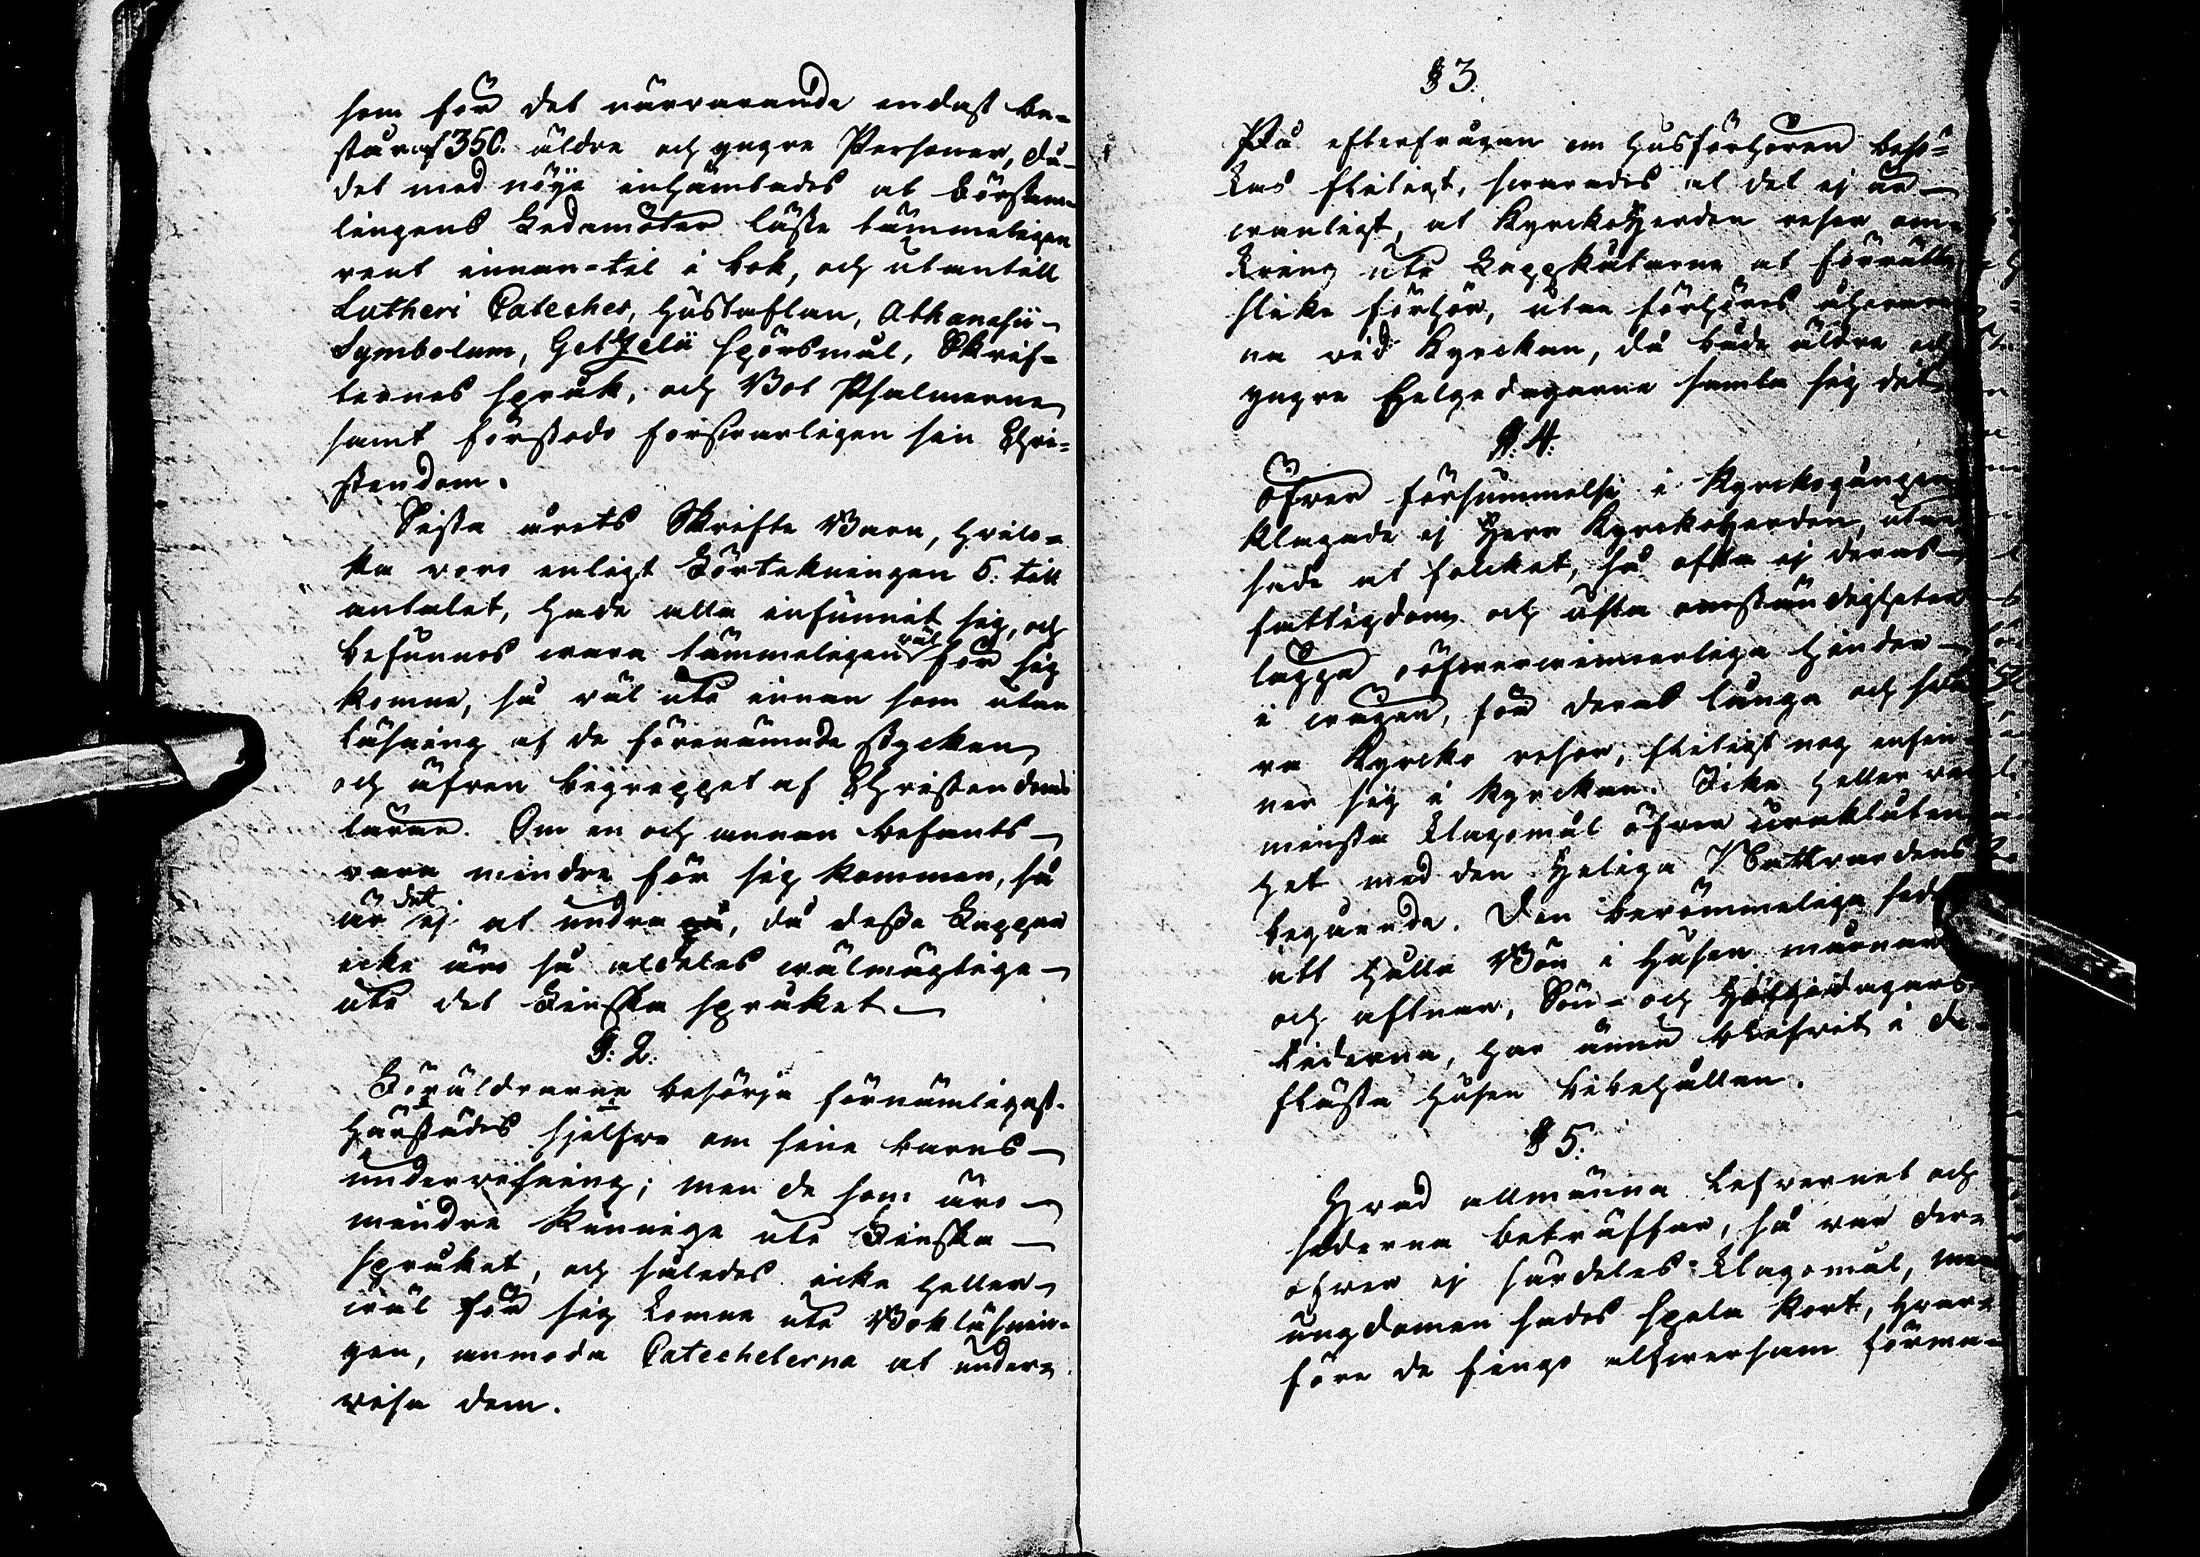 som för det närvarande endast be-
står af 350. äldre och yngre Personer, då
det med nöye inhämtades at Församb-
lingens Ledamöter läste tämmeligen
rent innan-til i bok, och utantill
Lutheri Cateches, Hustaflan, Athanasii
Symbolum, Getzelii spörsmål, Skrif-
ternes språk, och Bot Psalmerne
samt förstodo forsvarligen sin Chri-
stendom.
Sista årets Skrifte Barn, hvil-
ka voro enligt Förtekningen 5. till
antalet, hade alla infunnit sig, och
befunnos wara tämmeligen väl för sig
komne, så väl uti innan som utan
läsning af de förenämnde stycken
och äfven begreppet af Christendoms
läran. Om en och annan befants
vara mindre för sig kommen, så
är det ej at undra på, då desse Lappar
icke äro så aldeles wälmägtige
uti det Finska språket.
§: 2.
Föräldrarne besörja förnämligast
härstädes sjelfve om sine barns
underwisning; men de som äro
mindre kunnige uti Finska
språket, och således icke heller
wäl för sig komne uti Bokläsnin-
gen, anmoda Catecheterna at under-
visa dem.
§ 3.
På efterfrågan om Husförhören besö-
kas flitigt, svarades at det ej är
wanligt, at KyrckoHerden reser om-
kring uti Lappkåtorne at förrätta
slike förhör, utan förhöres åhörar-
na vid Kyrckan, då både äldre och
yngre Helgedagarne samla sig dit
§. 4.
Öfver försummelse i Kyrckogången
klagade ej Herr KyrckoHerden, utan
sade at folcket, så ofta ej deras
fattigdom och ofta omständigheter
lägga oöfverwinnerliga hinder
i wägen, för deras långa och svå-
ra Kyrcko resor, flitigt nog infin-
ner sig i Kyrckan. Icke heller var
minsta klagomål öfver uraklåten-
het med den Heliga Nattvardens
begående. Den berömmeliga sed
att hålla Bön i Husen mornar
och aftnar, Sön- och Högtidagars
tiderna, har ännu blifvit i de
flästa husen bibehållen.
§ 5.
Hvad allmänna Lefvernet och
sederna beträffar, så var der-
öfver ej särdeles klagomål, men
ungdomen sades spela Kort, hvar-
före de fingo alfwersam förma-